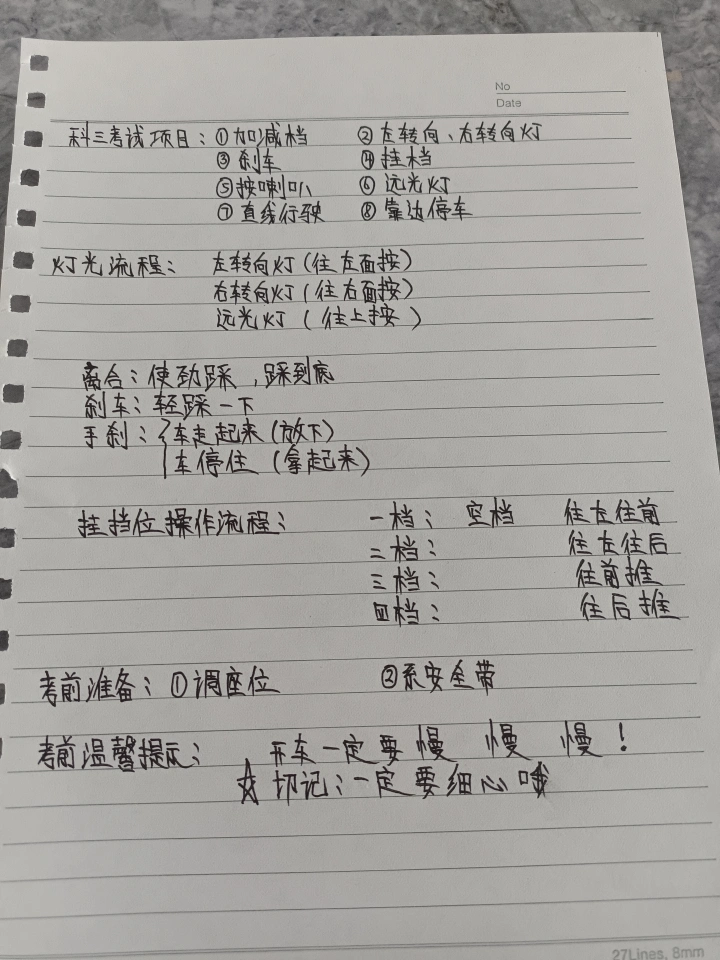 No
Date
科三考试项目：①加减档 ②左转向、右转向灯
③刹车 ④挂档
⑤按喇叭 ⑥远光灯
⑦直线行驶 ⑧靠边停车
灯光流程： 左转向灯(往左面按)
右转向灯(往右面按)
远光灯 (往上按)
离合：使劲踩，踩到底
刹车：轻踩一下
手刹：{车走起来(放下)
车停住 (拿起来)
挂挡位操作流程： 一档： 空档 往左往前
二档： 往左往后
三档： 往前推
四档： 往后推
考前准备：①调座位 ②系安全带
考前温馨提示： 开车一定要慢 慢 慢！
☆切记：一定要细心哦
27Lines, 8mm